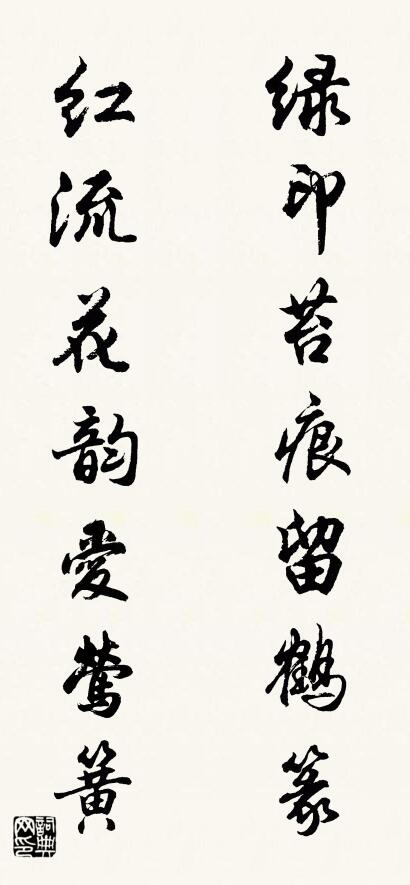 绿印苔痕留鹤篆
红流花韵爱莺簧
词典网印